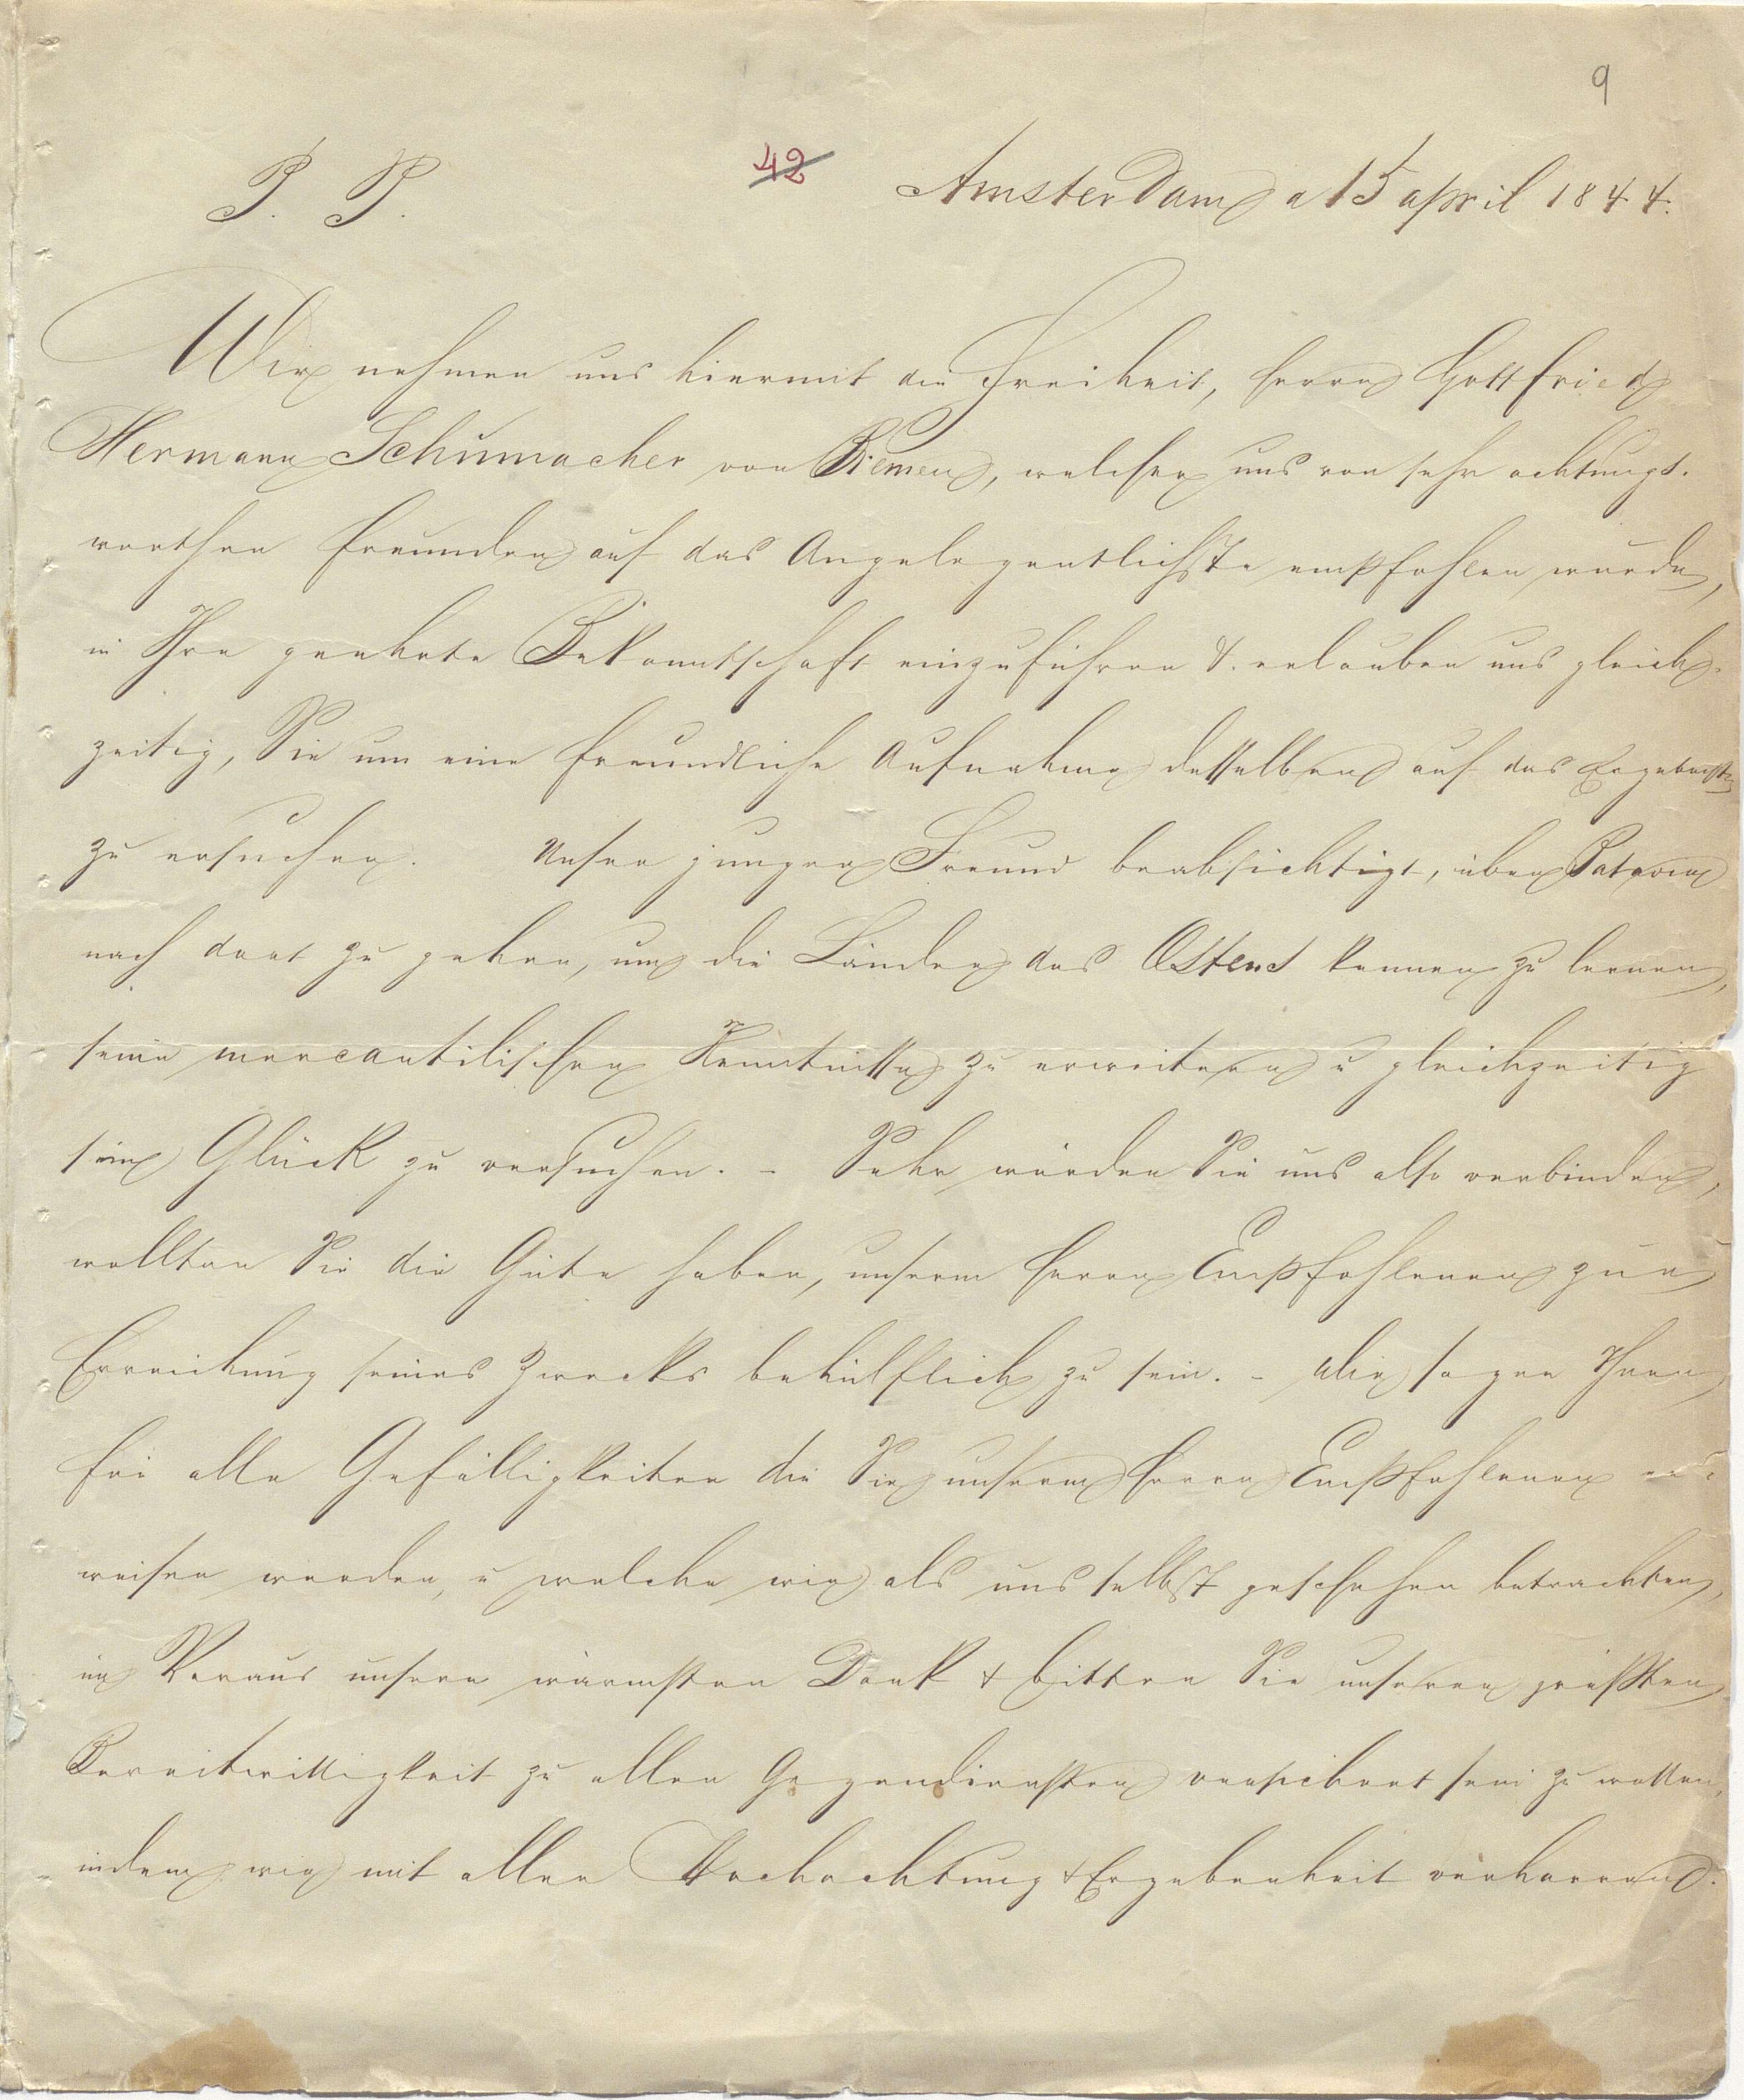 9
P. P.
42
Amsterdam a 15 april 1844.
Wir nehmen uns hiermit die Freiheit, Herrn Gottfried
Hermann Schumacher von Bremen, welcher uns von sehr achtungs-
werthen Freunden auf das Angelegentlichste empfohlen wurde,
in Ihre geehrte Bekanntschaft einzuführen & erlauben uns gleich-
zeitig, Sie um eine freundliche Aufnahme desselben auf das Ergebenste
zu ersuchen. Unser junger Freund beabsichtigt, über Batavia
nach dort zu gehen, um die Länder des Ostens kennen zu lernen,
seine mercantilischen Kenntnisse zu erweitern u gleichzeitig
sein Glück zu versuchen. - Sehr würden Sie uns also verbinden,
wollten Sie die Güte haben, unserm Herrn Empfohlenen zur
Erreichung seines Zwecks behülflich zu sein. - Wir sagen Ihnen
für alle Gefälligkeiten die Sie unserm Herrn Empfohlenen er-
weisen werden, u welche wir als uns selbst geschehen betrachten,
im Voraus unsern wärmsten Dank & bitten Sie unserer größten
Bereitwilligkeit zu allen Gegendiensten versichert sein zu wollen,
indem wir mit aller Hochachtung & Ergebenheit verharren.